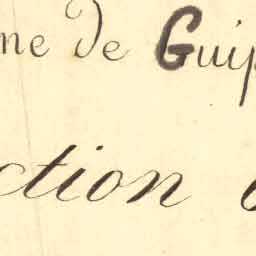 ne de Guip
ction